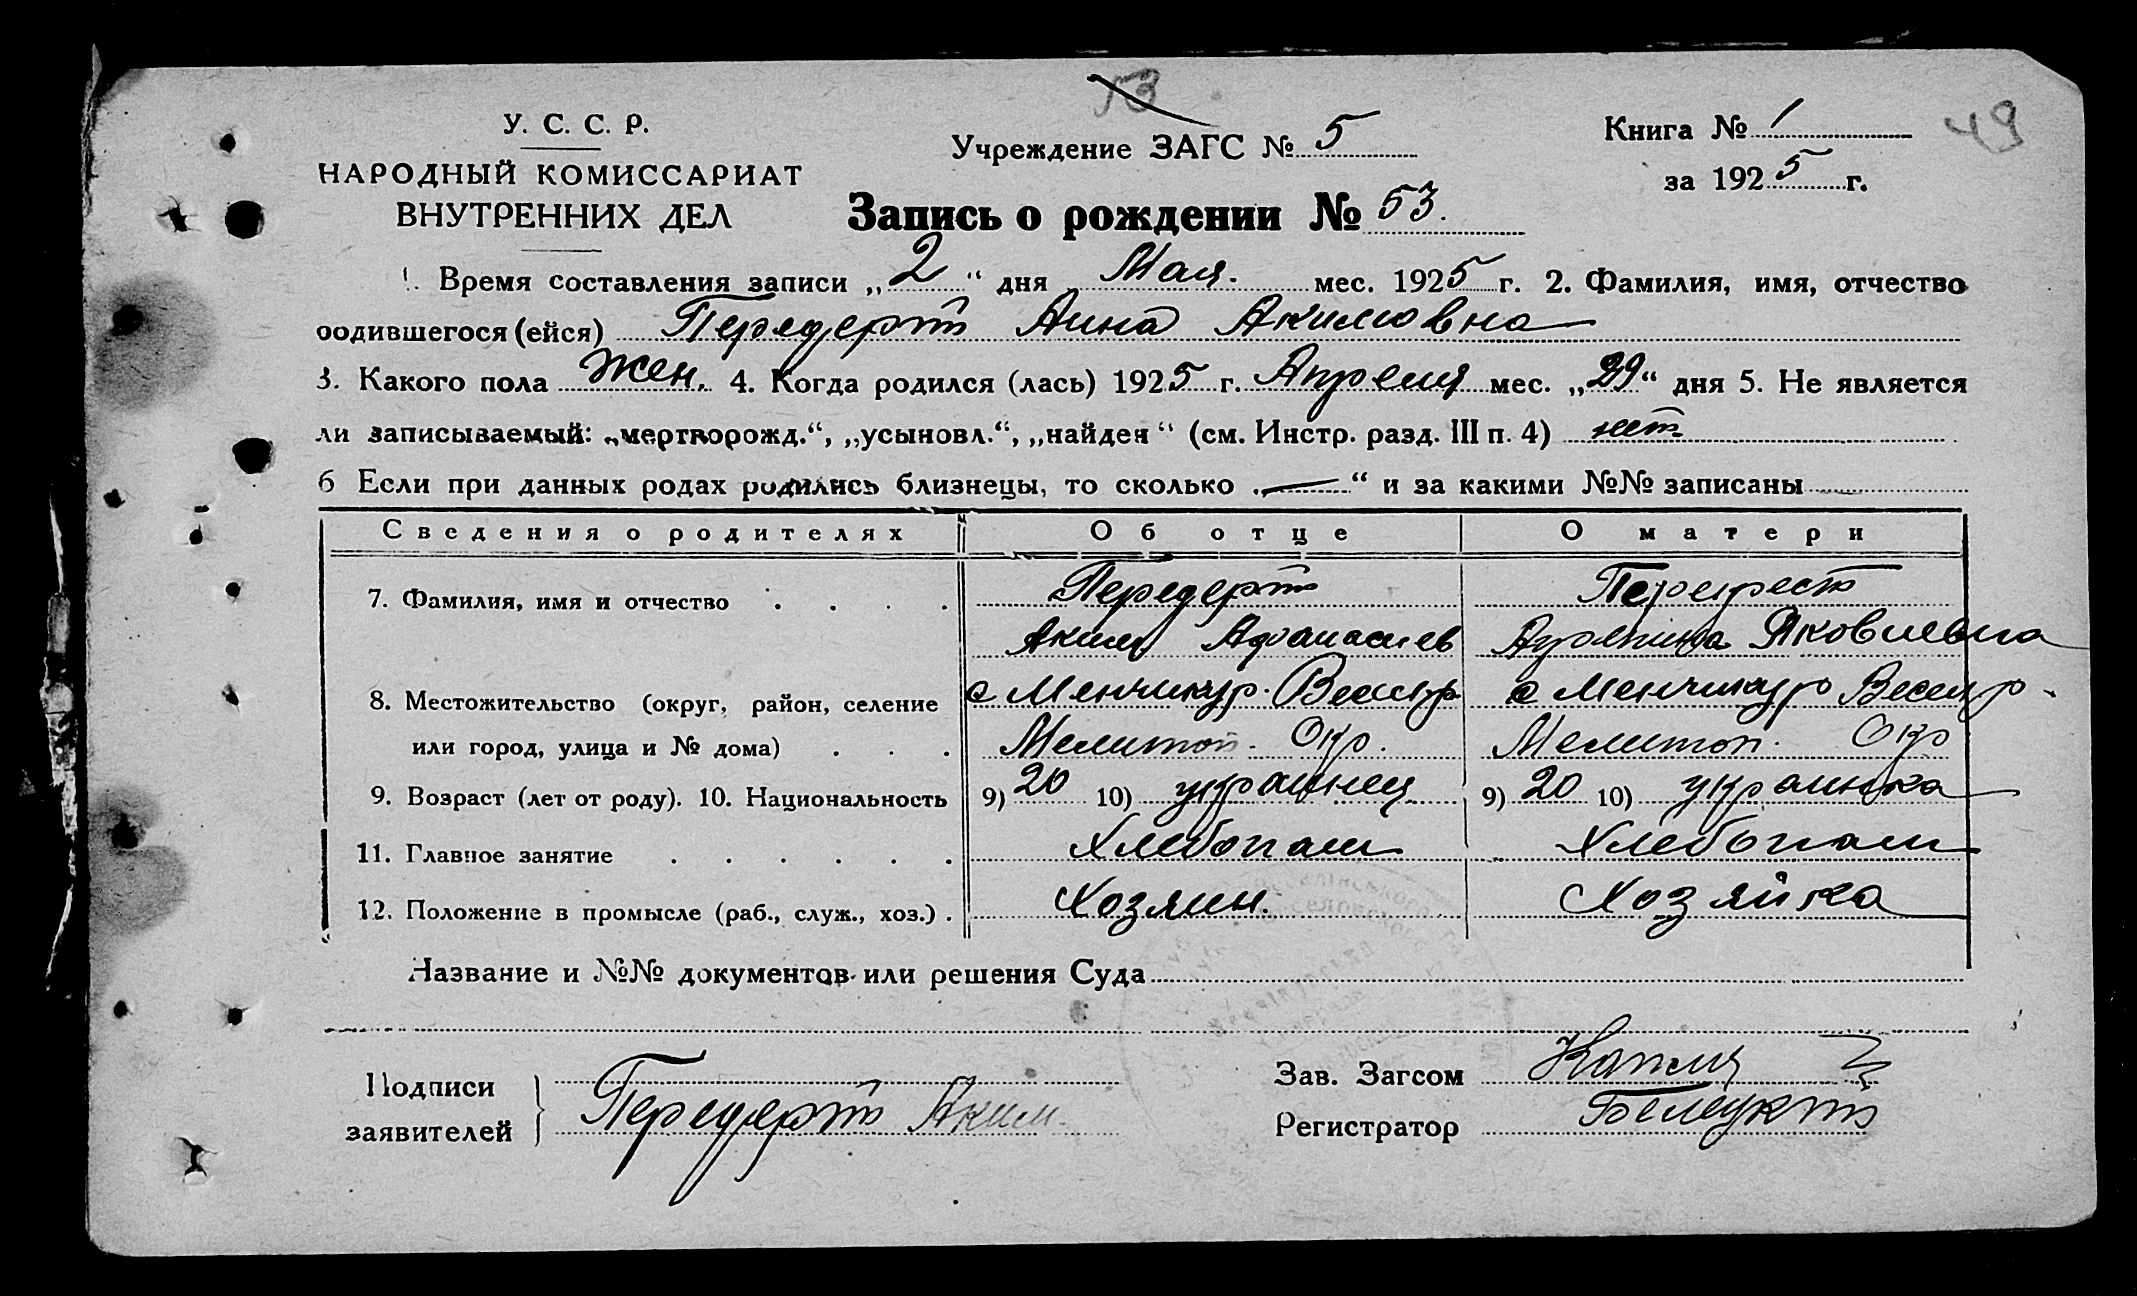 53
49
У. С. С. Р.
НАРОДНЫЙ КОМИССАРИАТ
ВНУТРЕННИХ ДЕЛ
Учреждение ЗАГС № 5
Книга № 1
за 1925 г.
Запись о рождении № 53.
1. Время составления записи „2“ дня Мая. мес. 1925 г. 2. Фамилия, имя, отчество
родившегося (ейся) Передерт Анна Акимовна
3. Какого пола Жен. 4. Когда родился (лась) 1925 г. Апреля мес. „29“ дня 5. Не является
ли записываемый: „мертворожд.“, „усыновл.“, „найден“ (см. Инстр. разд. III п. 4) нет
6 Если при данных родах родились близнецы, то сколько „—“ и за какими №№ записаны
Сведения о родителях Об отце О матери
7. Фамилия, имя и отчество Передерт Перекрест
Аким Афанасиев Яковлевна
8. Местожительство (округ, район, селение с Менчикур. Весел р с Менчикур Весел р.
или город, улица и № дома) Мелитоп. Окр. Мелитоп. Окр
9. Возраст (лет от роду). 10. Национальность 9) 20 10) украинец 9) 20 10) украинка
11. Главное занятие Хлебопаш Хлебопаш
12. Положение в промысле (раб., служ., хоз.) Хозяин. Хозяйка
Название и №№ документов или решения Суда
Подписи
заявителей Передерт Аким
Зав. Загсом
Регистратор